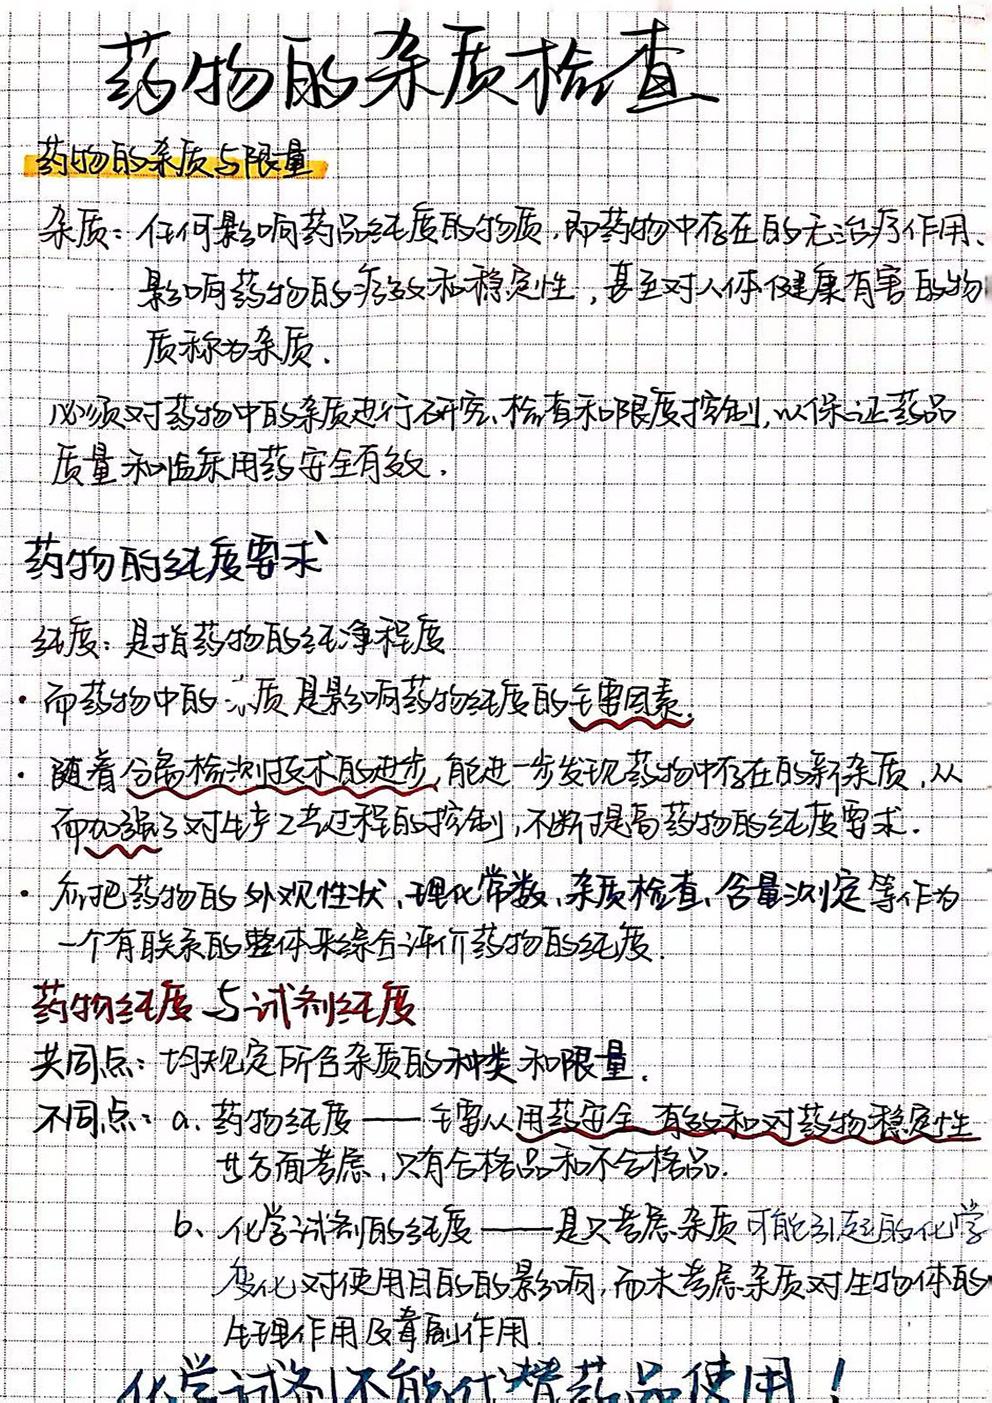 药物的杂质检查
药物的杂质与限量
杂质：任何影响药品纯度的物质，即药物中存在的无治疗作用、
影响药物的疗效和稳定性，甚至对人体健康有害的物
质称为杂质.
必须对药物中的杂质进行研究、检查和限度控制，以保证药品
质量和临床用药安全有效.
药物的纯度要求
纯度：是指药物的纯净程度
·而药物中的杂质是影响药物纯度的主要因素.
·随着分离检测技术的进步，能进一步发现药物中存在的新杂质，从
而加强了对生产工艺过程的控制，不断提高药物的纯度要求.
·应把药物的外观性状、理化常数、杂质检查、含量测定等作为
一个有联系的整体来综合评价药物的纯度.
药物纯度与试剂纯度
共同点：均规定所含杂质的种类和限量.
不同点：a.药物纯度——主要从用药安全、有效和对药物稳定性
等方面考虑，只有合格品和不合格品.
b、化学试剂的纯度——是只考虑杂质可能引起的化学
变化对使用目的的影响，而未考虑杂质对生物体的
生理作用及毒副作用.
化学试剂不能代替药品使用！